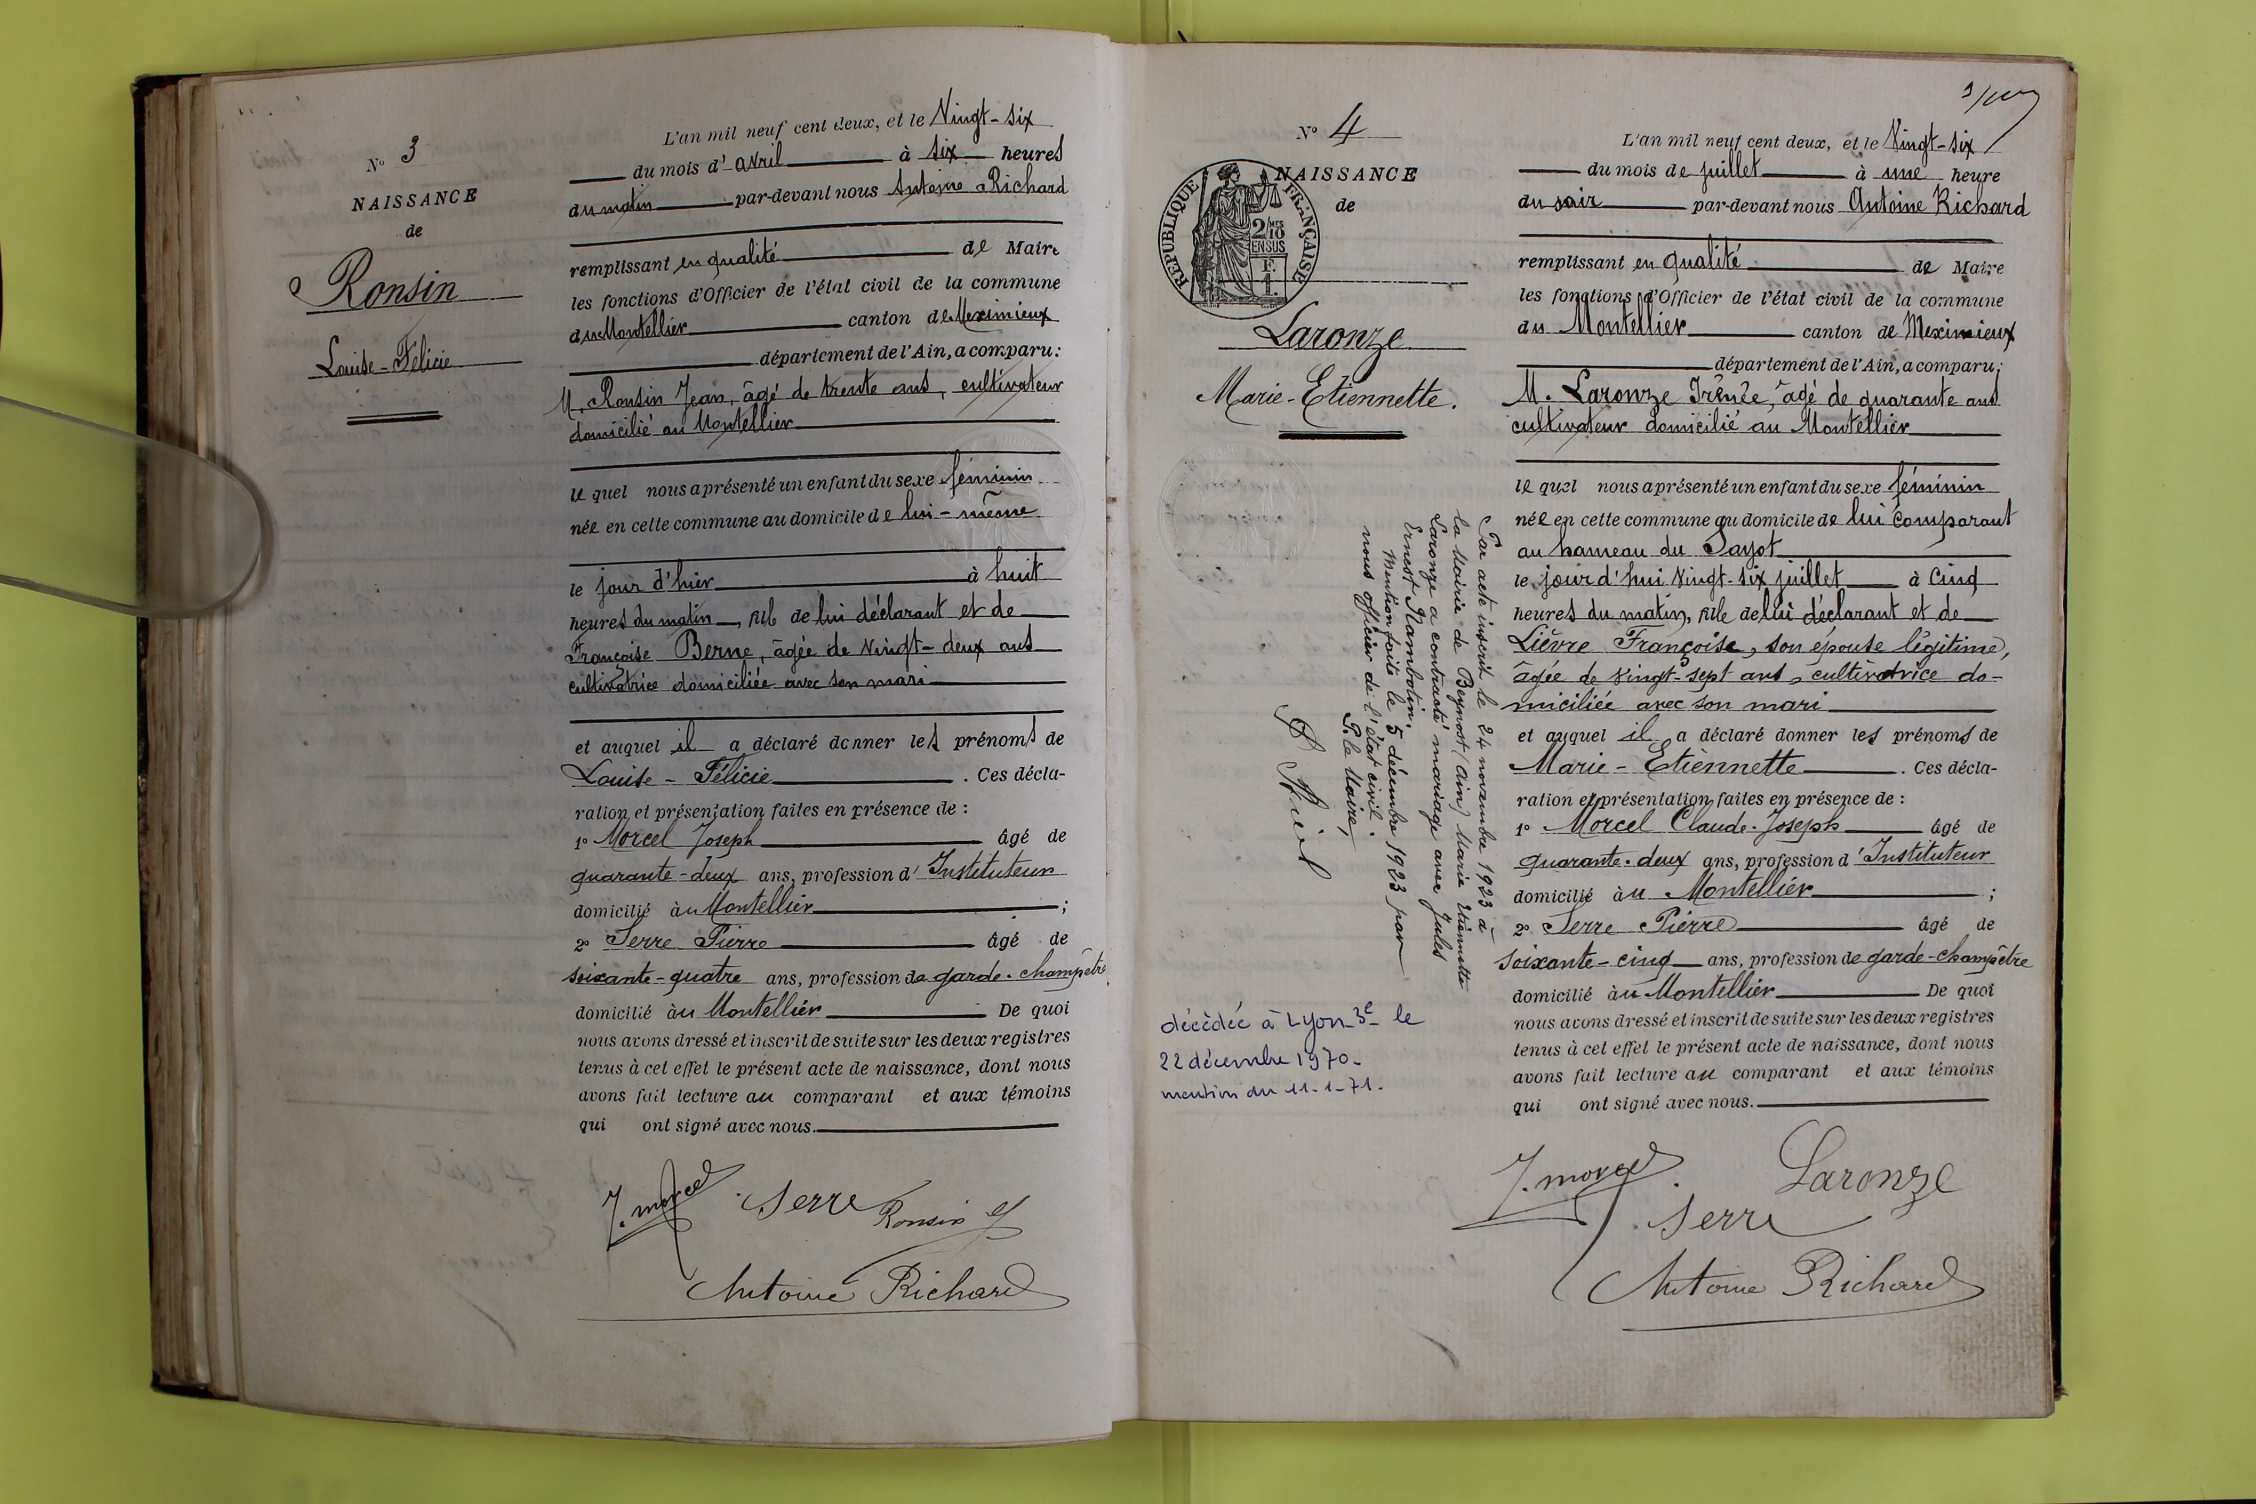 N° 3
NAISSANCE
de
Ronsin
Louise-Félicie
L'an mil neuf cent deux, et le Vingt-six
du mois d'avril à six heures
du matin par-devant nous Antoine Richard
remplissant en qualité de Maire
les fonctions d'Officier de l'état civil de la commune
du Montellier canton de Meximieux
département de l'Ain, a comparu:
M. Ronsin Jean, âgé de trente ans, cultivateur
domicilié au Montellier
le quel nous a présenté un enfant du sexe féminin
née en cette commune au domicile de lui-même
le jour d'hier à huit
heures du matin, fille de lui déclarant et de
Françoise Berne, âgée de vingt-deux ans
cultivatrice domiciliée avec son mari
et auquel il a déclaré donner les prénoms de
Louise-Félicie. Ces décla-
ration et présentation faites en présence de :
1° Morcel Joseph âgé de
quarante-deux ans, profession d'Instituteur
domicilié àu Montellier ;
2° Serre Pierre âgé de
soixante-quatre ans, profession de garde-champêtre
domicilié àu Montellier De quoi
nous avons dressé et inscrit de suite sur les deux registres
tenus à cet effet le présent acte de naissance, dont nous
avons fait lecture au comparant et aux témoins
qui ont signé avec nous.
J. morcel Serre Ronsin
Antoine Richard
N° 4
NAISSANCE
de
RÉPUBLIQUE FRANÇAISE
2/10
EN SUS
F.
1.
Laronze
Marie-Etiennette.
Par acte inscrit le 24 novembre 1923 à
la Mairie de Beynost (Ain) Marie Etiennette
Laronze a contracté mariage avec Jules
Ernest Rambotin.
Mention faite le 5 décembre 1923 par
nous officier de l'état civil.
P. le Maire,
décédée à Lyon-3e le
22 décembre 1970-
mention du 11-1-71.
L'an mil neuf cent deux, et le Vingt-six
du mois de juillet à une heure
du soir par-devant nous Antoine Richard
remplissant en qualité de Maire
les fonctions d'Officier de l'état civil de la commune
du Montellier canton de Meximieux
département de l'Ain, a comparu:
M. Laronze Irénée, âgé de quarante ans
cultivateur domicilié au Montellier
le quel nous a présenté un enfant du sexe féminin
née en cette commune au domicile de lui comparant
au hameau du Sayot
le jour d'hui vingt-six juillet à cinq
heures du matin, fille de lui déclarant et de
Lièvre Françoise, son épouse légitime,
âgée de vingt-sept ans, cultivatrice do-
miciliée avec son mari
et auquel il a déclaré donner les prénoms de
Marie-Etiennette. Ces décla-
ration et présentation faites en présence de :
1° Morcel Claude-Joseph âgé de
quarante-deux ans, profession d'Instituteur
domicilié àu Montellier ;
2° Serre Pierre âgé de
soixante-cinq ans, profession de garde-champêtre
domicilié àu Montellier De quoi
nous avons dressé et inscrit de suite sur les deux registres
tenus à cet effet le présent acte de naissance, dont nous
avons fait lecture au comparant et aux témoins
qui ont signé avec nous.
J. morcel Laronze
Serre
Antoine Richard